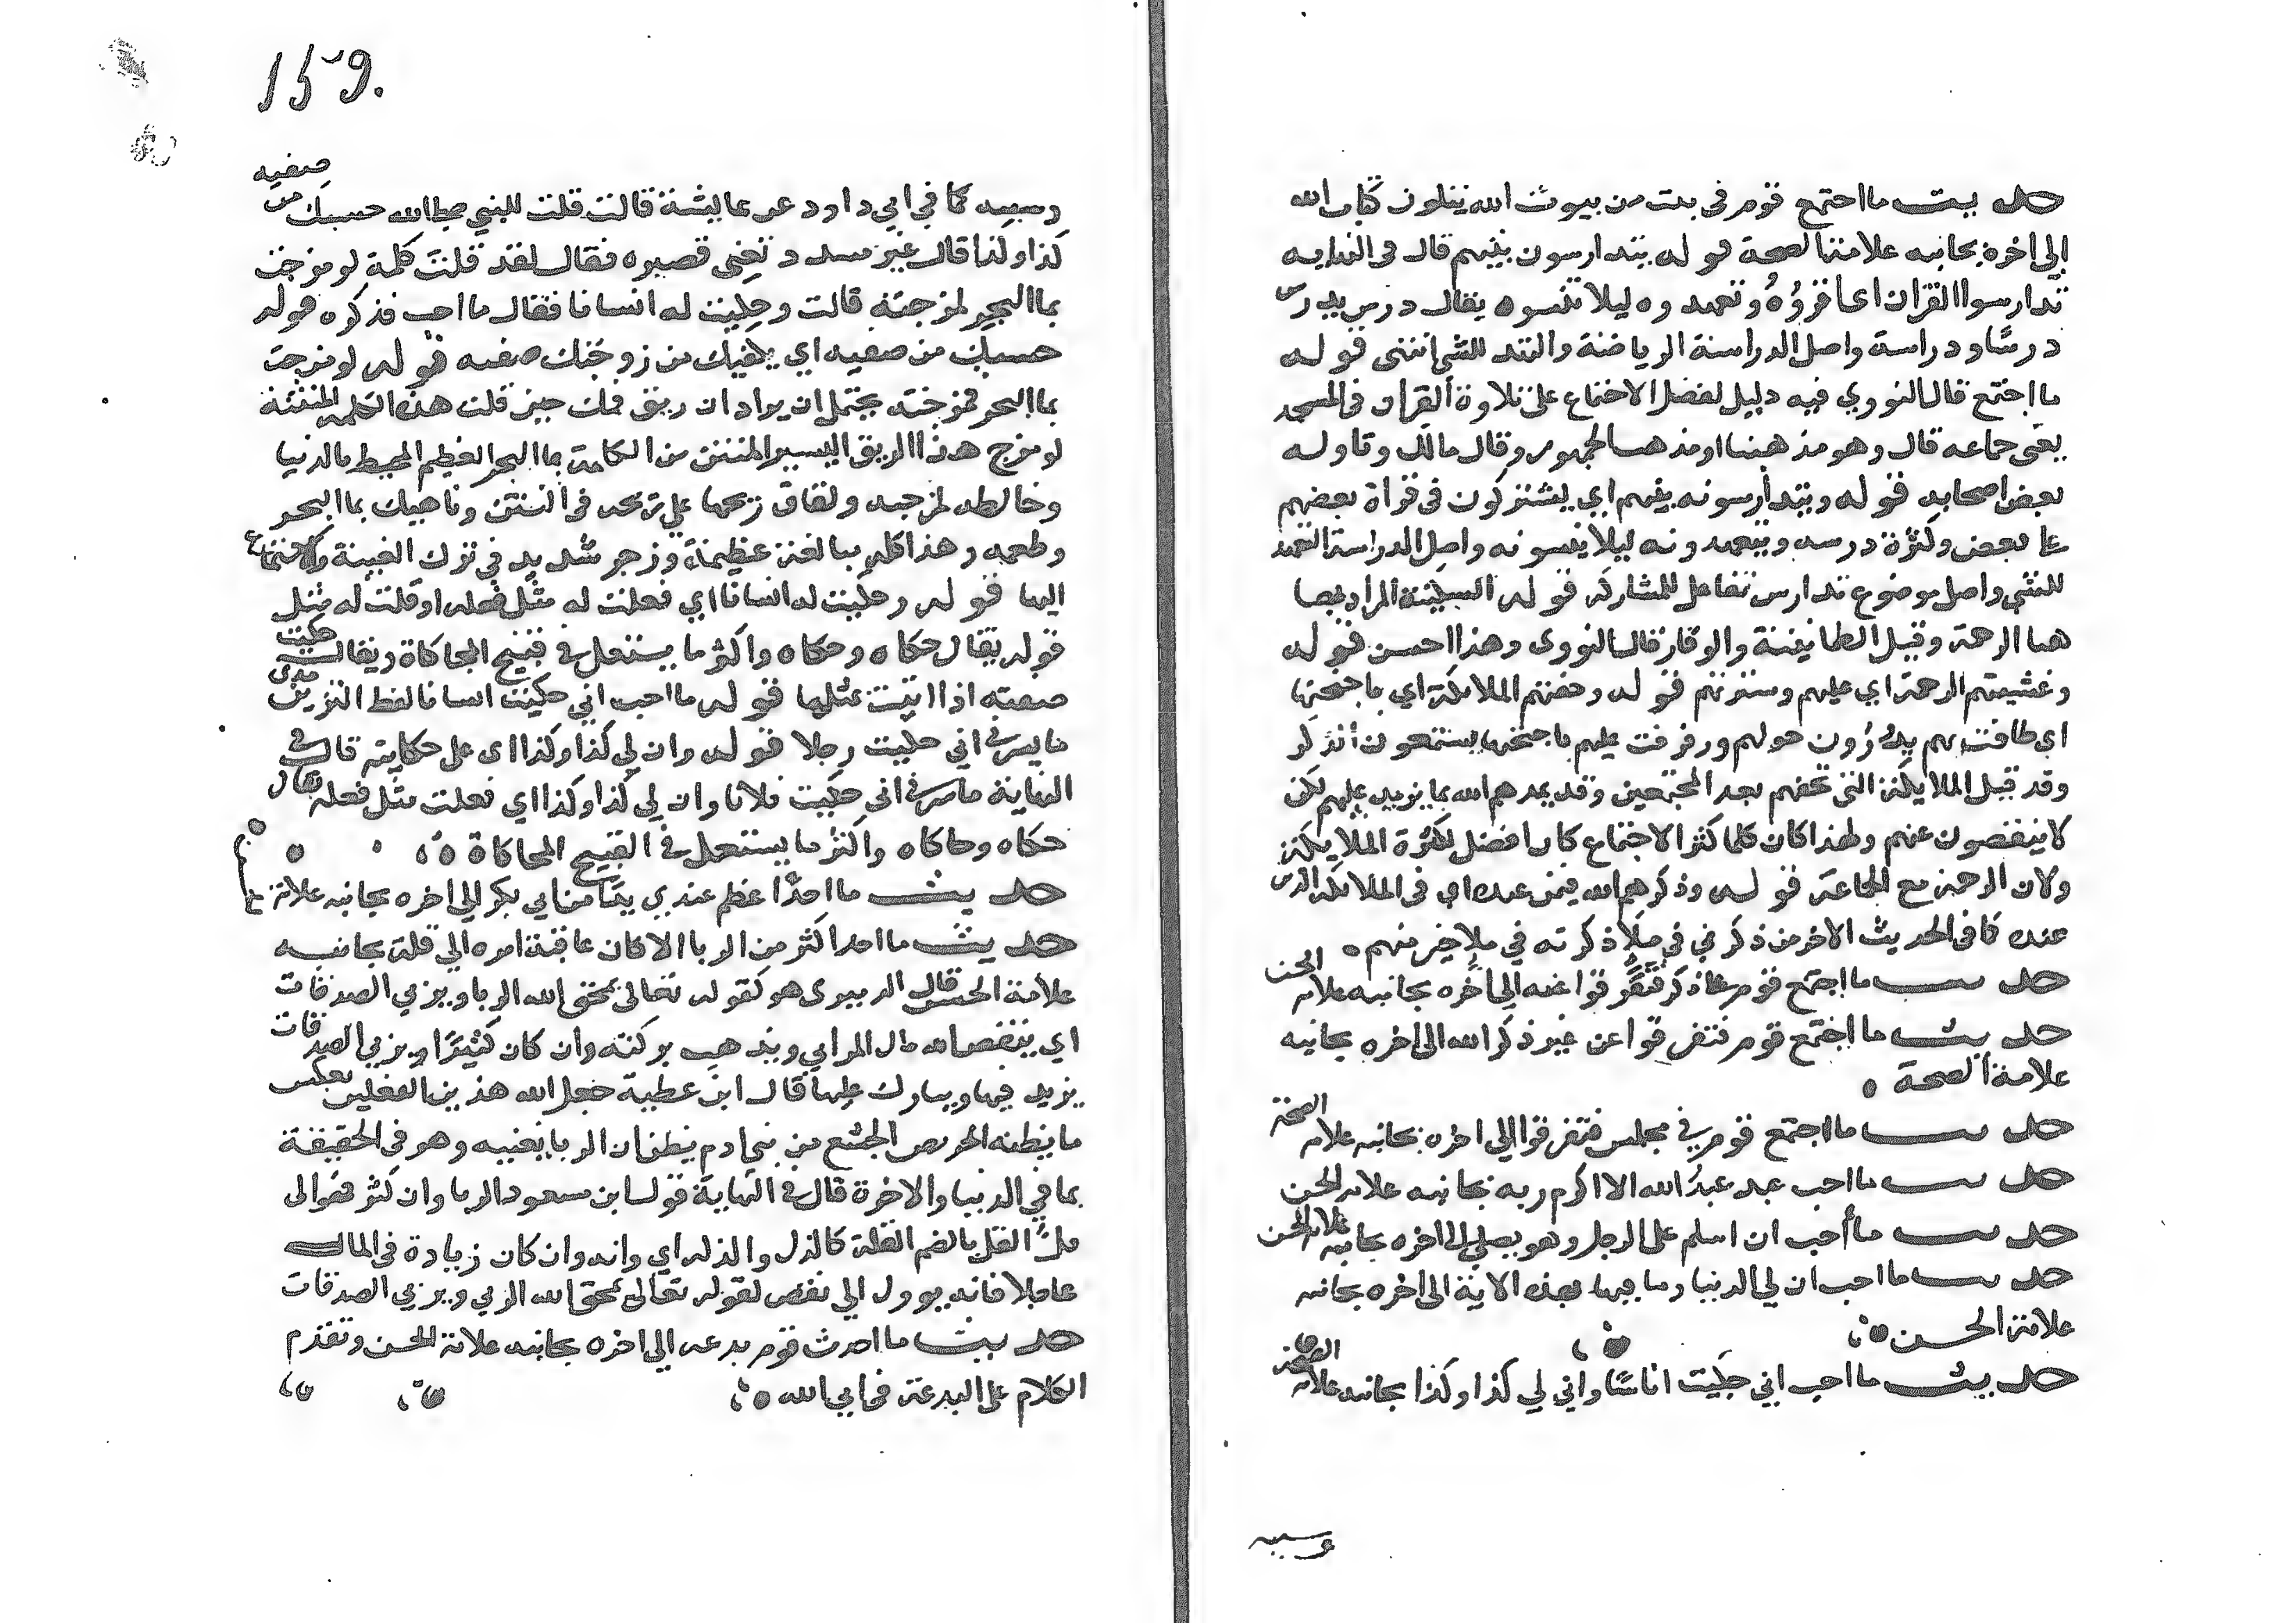 حديث ما اجتمع قوم في بيت من بيوت الله يتلون كتاب الله
الى اخره بجانبه علامة الصحة قوله يتدارسون بينهم قال في النهايه
تدارسوا القران اي اقرؤه وتعهدوه ليلا تنسوه يقال درس يدرس
درسًا ودراسة واصل الدراسة الرياضة والتعهد للشي انتهى قوله
ما اجتمع قال النووي فيه دليل لفضل الاجتماع على تلاوة القران في المسجد
يعني جماعه قال وهو مذهبنا ومذهب الجمهور وقال مالك وتاوله
بعض اصحابه قوله ويتدارسونه بينهم اي يشتركون في قراة بعضهم
على بعض وكثرة درسه ويتعهدونه ليلا ينسونه واصل الدراسة التعهد
للشي واصل موضوع تدارس تفاعل للمشاركه قوله السكينة المراد بها
هنا الرحمة وقيل الطمانينة والوقار قال النووي وهذا احسن قوله
وغشيتهم الرحمة اي عليهم وسترتهم قوله وحفتهم الملائكة اي باجنحتها
اي طافت بهم يدورون حولهم ورفرفت عليهم باجنحتها يستمعون الذكر
وقد قيل الملايكة التي تحفهم بعد المجتمعين وقد يمدهم الله بما يزيد عليهم لكن
لا ينقصون عنهم ولهذا كان كلما كثر الاجتماع كان افضل لكثرة الملايكة
ولان الرحمة مع الجماعة قوله وذكرهم الله فيمن عنده اي في الملائكة الذين
عنده كما في الحديث الاخر من ذكرني في ملاء ذكرته في ملا خير منهم ه
حديث ما اجتمع قوم على ذكر فتفرقوا عنه الى اخره بجانبه علامة الحسن
حديث ما اجتمع قوم فتفرقوا عن غير ذكر الله الى اخره بجانبه
علامة الصحة ه
حديث ما اجتمع قوم في مجلس فتفرقوا الى اخره بجانبه علامة الصحة
حديث ما احب عبد عبدًا لله الا اكرم ربه بجانبه علامة الحسن
حديث ما أحب ان اسلم على الرجل وهو يصلي الى اخره بجانبه علامة الحسن
حديث ما احب ان لي الدنيا وما فيها بهذه الاية الى اخره بجانبه
علامة الحسن
حديث ما احب اني حكيت اناسًا واني لي كذا وكذا بجانبه علامة الصحة
وسببه
159.
وسببه كما في ابي داود عن عايشة قالت قلت للنبي صلى الله حسبك من صفيه
كذا وكذا قال غير مسدد تعني قصيره فقال لقد قلت كلمة لو مزجت
بماء البحر لمزجته قالت وحكيت له انسانا فقال ما احب فذكره قوله
حسبك من صفيه اي يكفيك من زوجتك صفيه قوله لو مزجت
بماء البحر لمزجته يحتمل ان يراد ان ريق فمك حين قلت هذه الكلمة المنتنة
لو مزج هذا الريق اليسير المنتن من الكلمة بماء البحر العظيم المحيط بالدنيا
وخالطه لمزجه ولفاق ريحها على ريحه في النتن وناهيك بماء البحر
وطعمه وهذا كله مبالغة عظيمة وزجر شديد في ترك الغيبة والاستماع
اليها قوله وحكيت له انسانا اي فعلت له مثل فعله او قلت له مثل
قوله يقال حكاه وحكاه واكثر ما يستعمل في قبيح المحاكاة ويقال حكيت
صنعته اذا اتيت بمثلها قوله ما احب اني حكيت انسانا لفظ الترمذي
ما يسرني اني حكيت رجلا قوله وان لي كذا وكذا اي على حكايته قال في
النهاية ما سرني اني حكيت فلانا وان لي كذا وكذا اي فعلت مثل فعله يقال
حكاه وحاكاه واكثر ما يستعمل في القبيح المحاكاة
حديث ما احدًا عظم عندي يدًا من ابي بكر الى اخره بجانبه علامة
حديث ما احد اكثر من الربا الا كان عاقبة امره الى قلة بجانبه
علامة الحسن قال الدميري هو كقوله تعالى يمحق الله الربا ويربي الصدقات
اي ينقص الله مال المرابي ويذهب بركته وان كان كثيرًا ويربي الصدقات
يزيد فيها ويبارك عليها قال ابن عطية جعل الله هذين الفعلين بعكس
ما يظنه الحريص الجشع من بني ادم يظن ان الربا يغنيه وهو في الحقيقة
بما في الدنيا والاخرة قال في النهاية قول ابن مسعود الربا وان كثر فهو الى
قلٍ القل بالضم القلة كالذل والذله اي وانه وان كان زيادة في المال
عاجلا فانه يوول الى نقص لقوله تعالى يمحق الله الربي ويربي الصدقات
حديث ما احدث قوم بدعه الى اخره بجانبه علامة الحسن وتقدم
الكلام على البدعة في ابي الله